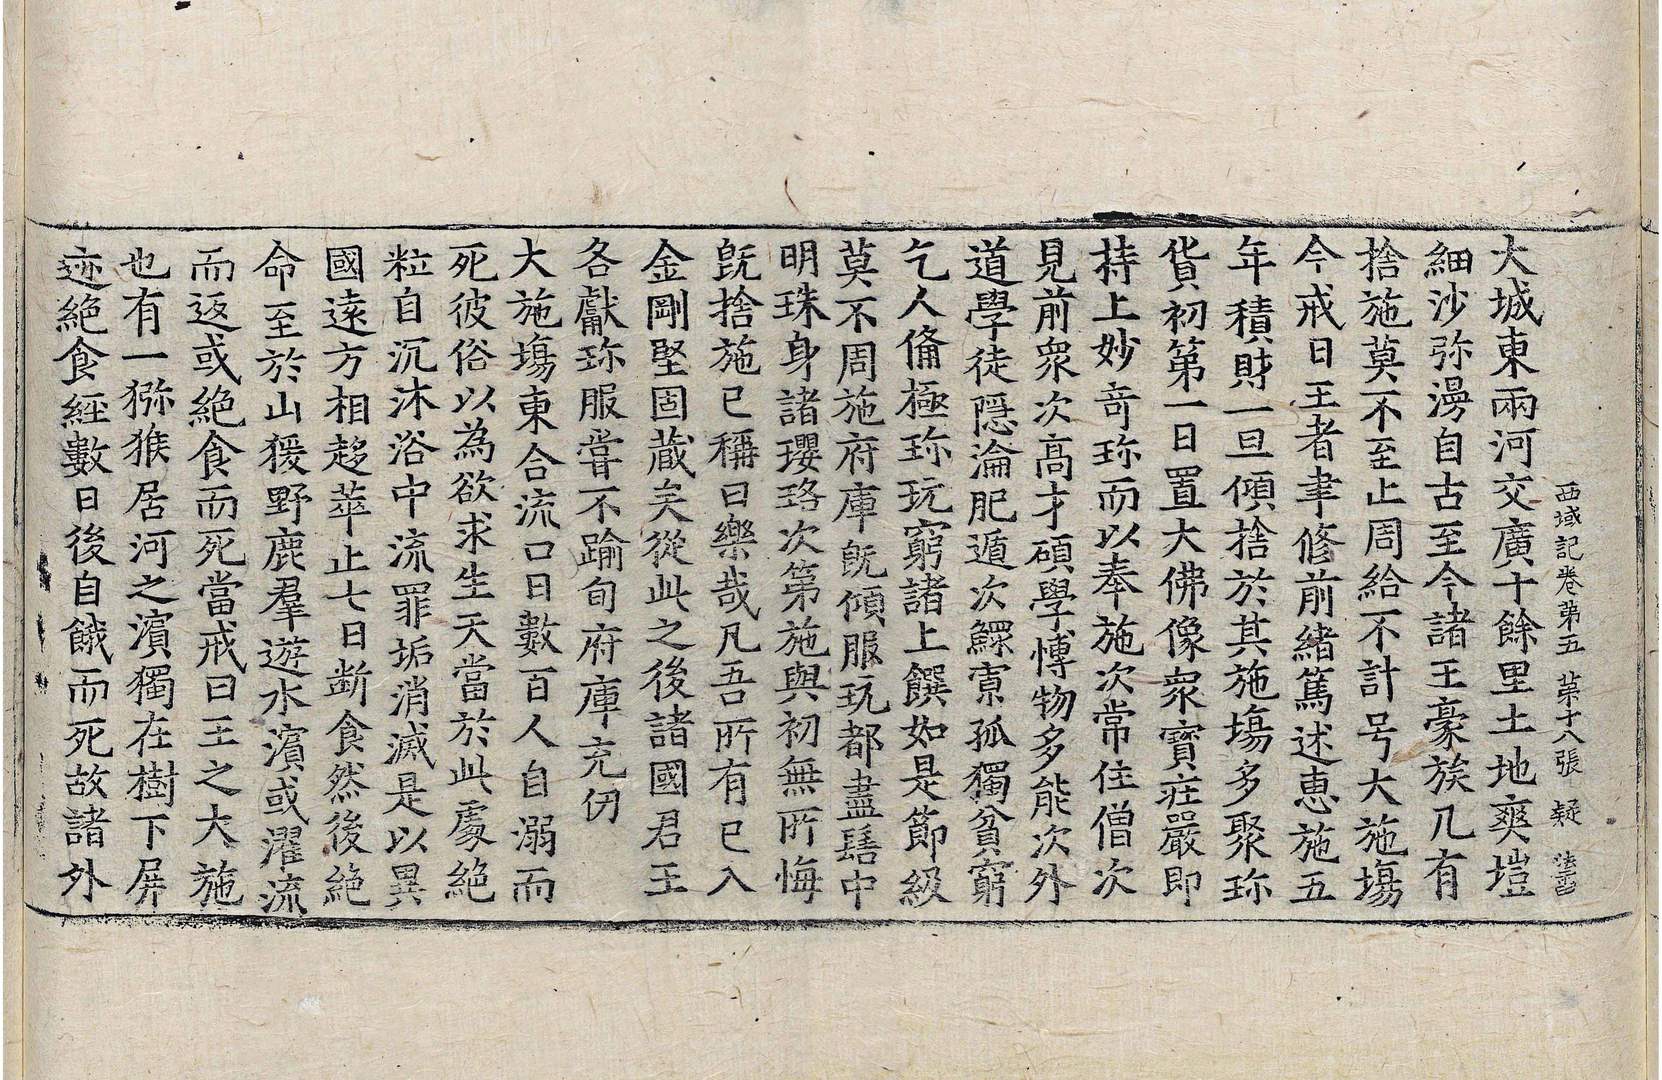 西域記卷第五 第十八張 疑
大城東兩河交廣十餘里土地爽塏
細沙弥漫自古至今諸王豪族凡有
捨施莫不至止周給不計号大施場
今戒日王者聿修前緒篤述惠施五
年積財一旦傾捨於其施場多聚珎
貨初第一日置大佛像衆寶莊嚴即
持上妙竒珎而以奉施次常住僧次
見前衆次髙才碩學愽物多能次外
道學徒隱淪肥遁次鰥寡孤獨貧窮
乞人俻極珎玩窮諸上饌如是節級
莫不周施府庫旣傾服玩都盡髻中
明珠身諸瓔珞次第施與初無所悔
旣捨施已稱曰樂哉凡吾所有已入
金剛堅固蔵矣從此之後諸國君王
各獻珎服甞不踰旬府庫充仞
大施場東合流口日數百人自溺而
死彼俗以為欲求生天當於此處絶
粒自沉沐浴中流罪垢消滅是以異
國遠方相趍萃止七日断食然後絶
命至於山猨野鹿羣遊水濱或濯流
而返或絶食而死當戒日王之大施
也有一獼猴居河之濱獨在樹下屏
迹絶食經數日後自餓而死故諸外